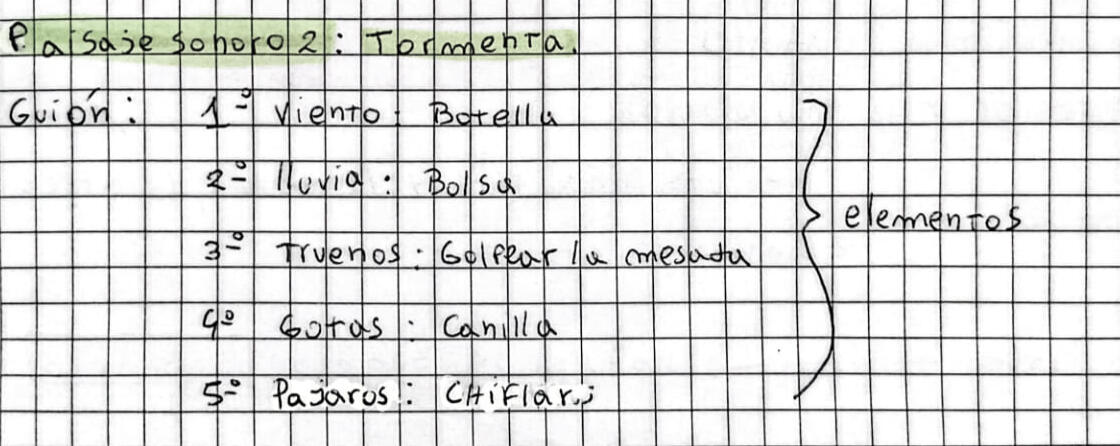 Paisaje sonoro 2: Tormenta.
Guión: 1º Viento: Botella
2º lluvia: Bolsa
elementos
3º Truenos: Golpear la mesada
4º Gotas: Canilla
5º Pajaros: CHiFlar.